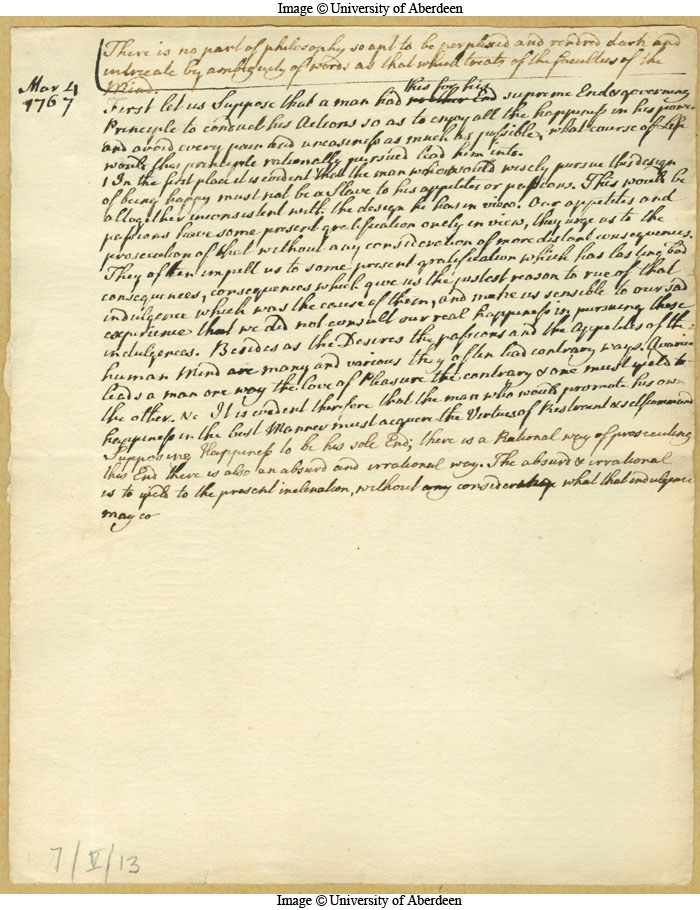 Image © University of Aberdeen
There is no part of philosophy so apt to be perplexed and rendred dark and
intricate by ambiguity of words as that which treats of the faculties of the
Mind.
Mar 4
1767
this for his
First let us Suppose that a man had no other End supreme End & governing
Principle to conduct his Actions so as to enjoy all the happiness in his power
and avoid every pain and uneasiness as much as possible, what course of Life
would this principle rationally pursued lead him into.
1 In the first place it is evident that the man who would wisely pursue this design
of being happy must not be a Slave to his appetites or passions. This would be
altogether inconsistent with the design he has in view. Our appetites and
passions have some present gratification onely in view, they urge us to the
prosecution of that without any consideration of more distant consequences.
They often impell us to some present gratification which has lasting bad
consequences, consequences which give us the justest reason to rue of that
indulgence which was the cause of them, and make us sensible to our sad
experience that we did not consult our real happiness in pursuing these
indulgences. Besides as the Desires the passions and the Appetites of the
human Mind are many and various they often lead contrary ways. Avarice
leads a man one way the love of Pleasure the contrary & one must yield to
the other. &c It is evident therefore that the man who would promote his own
happiness in the best Manner must acquire the Virtues of Restraint & self command
Supposing Happiness to be his sole End; there is a Rational way of prosecuting
this End there is also an absurd and irrational way. The absurd & irrational
is to yield to the present inclination, without any consideration what that indulgence
may co
7/V/13
Image © University of Aberdeen